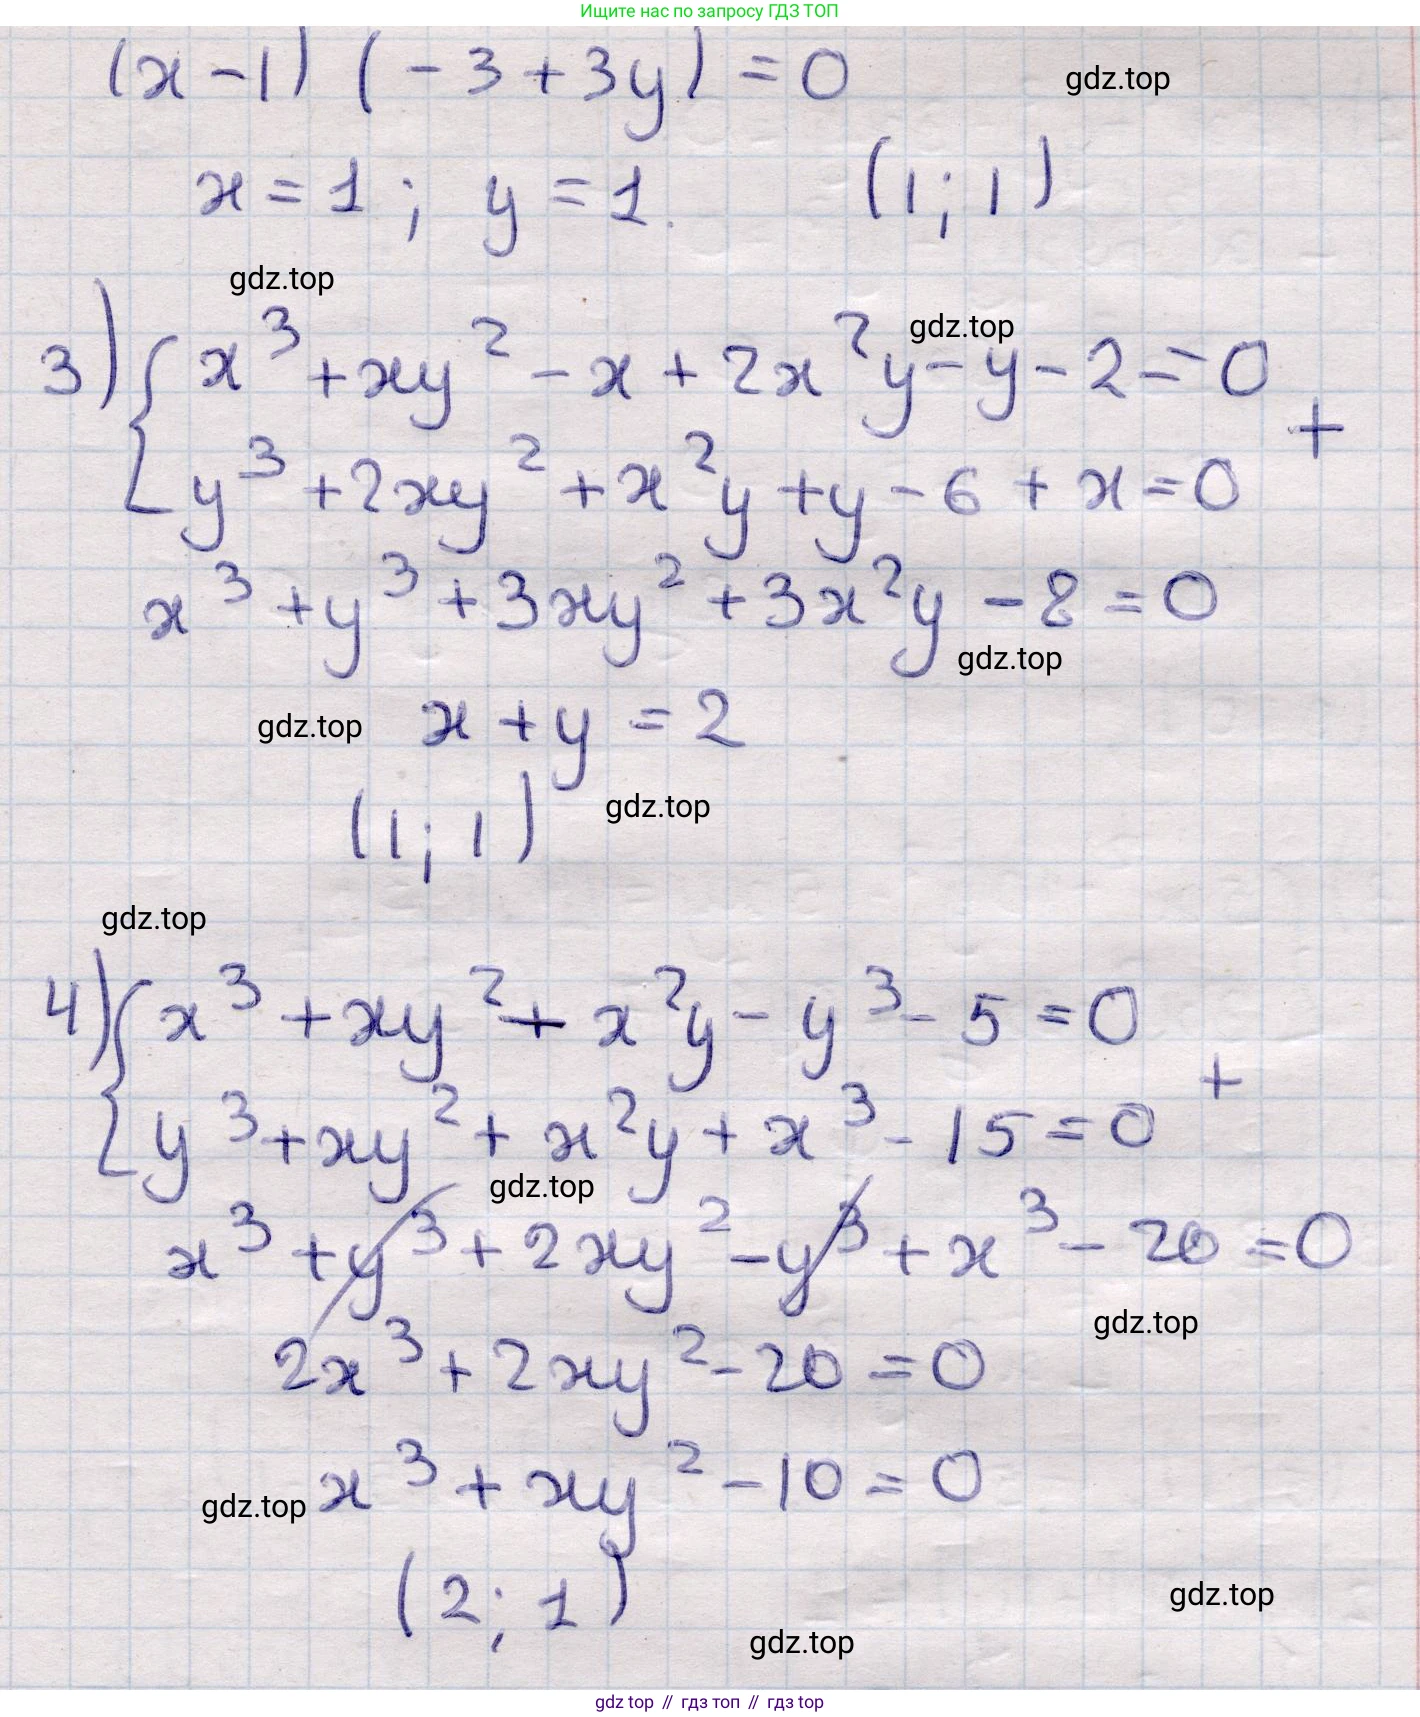 Ищите нас по запросу ГДЗ ТОП
(x-1) (-3+3y) = 0
gdz.top
x = 1; y = 1. (1; 1)
gdz.top
gdz.top
3) { x³ + xy² - x + 2x²y - y - 2 = 0
+
y³ + 2xy² + x²y + y - 6 + x = 0
x³ + y³ + 3xy² + 3x²y - 8 = 0
gdz.top
gdz.top
x + y = 2
(1; 1)
gdz.top
gdz.top
4) { x³ + xy² + x²y - y³ - 5 = 0
+
y³ + xy² + x²y + x³ - 15 = 0
gdz.top
x³ + y³ + 2xy² - y³ + x³ - 20 = 0
gdz.top
2x³ + 2xy² - 20 = 0
gdz.top
x³ + xy² - 10 = 0
(2; 1)
gdz.top
gdz.top
gdz top // гдз топ // гдз top